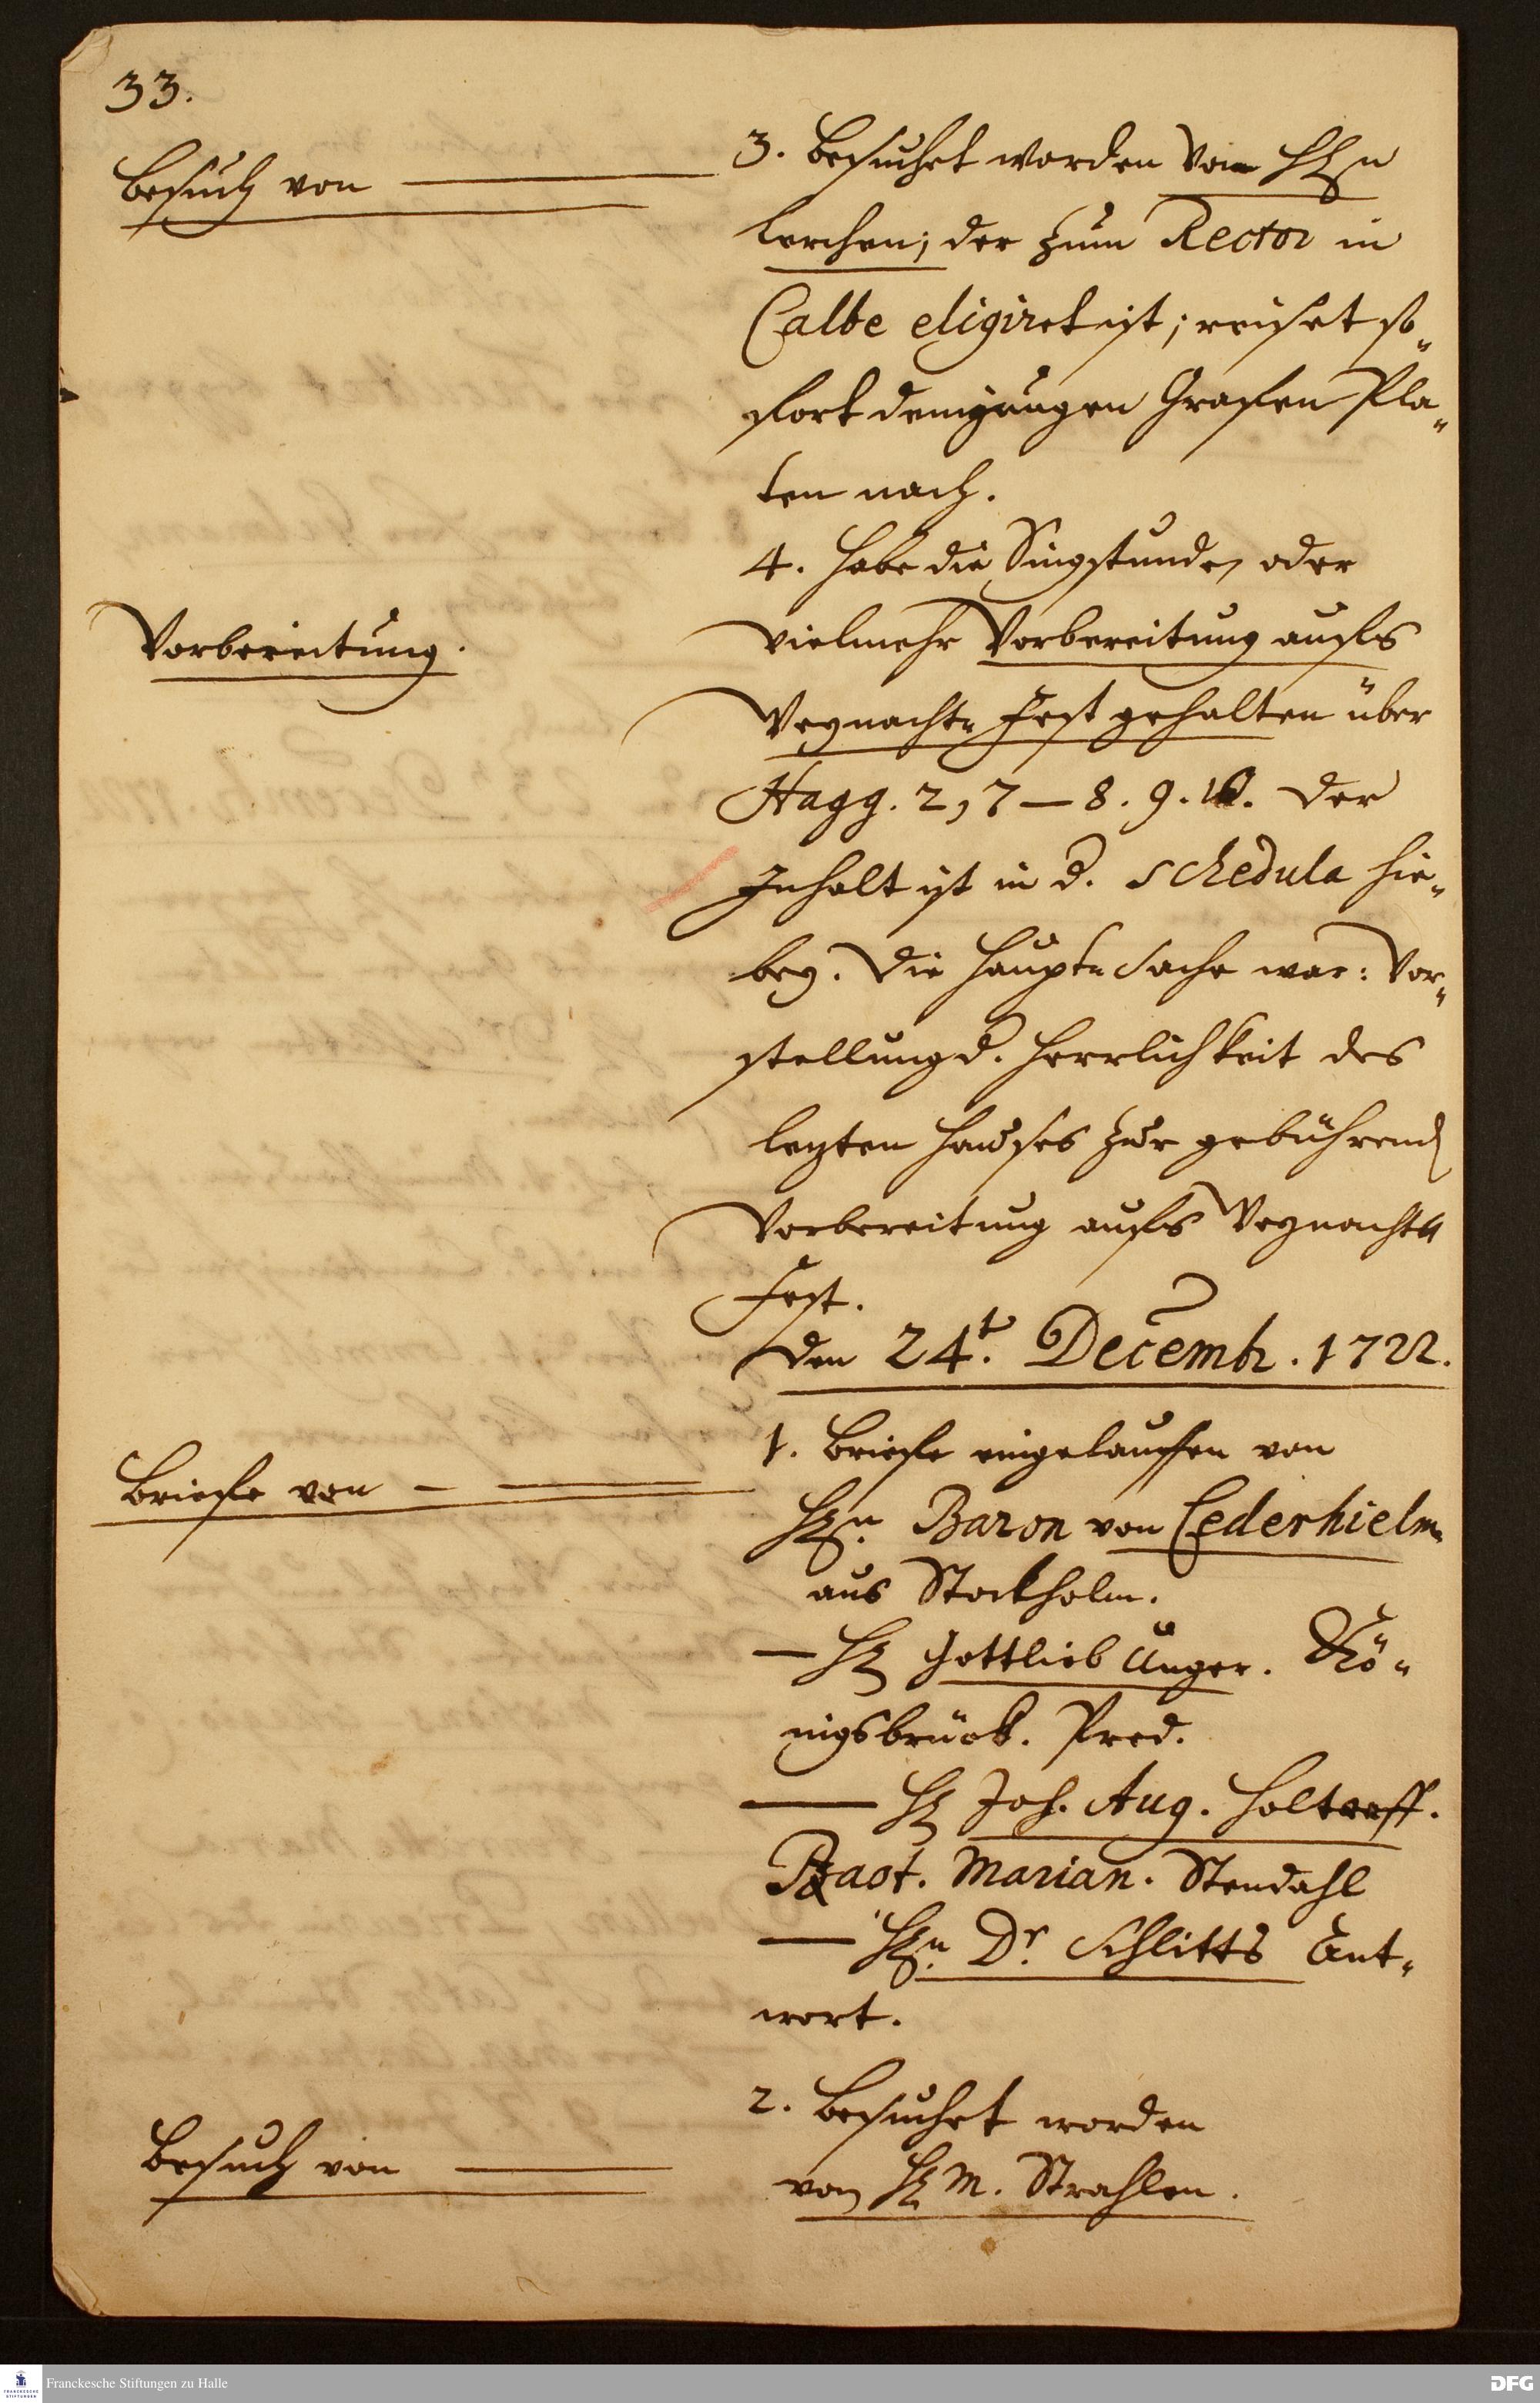 33.
Besuch von
3. Besuchet worden von HEn
Lerchen; der zum Rector in
Calbe eligiret ist; reiset so-
fort dem jungen Grafen Pla-
ten nach.
Vorbereitung.
4. Habe die Singstunde, oder
vielmehr Vorbereitung aufs
Weynacht-Fest gehalten über
Hagg. 2, 7–8. 9. 10. Der
Inhalt ist in d. schedula hie-
bey. Die Haupt-Sache war: Vor-
stellung d. Herrlichkeit des
letzten Hauses zur gebührend
Vorbereitung aufs Weynacht-
Fest.
Den 24t. Decemb. 1722.
Briefe von
1. Briefe eingelauffen von
HEn. Baron von Cederhielm
aus Stockholm.
— HE Gottlieb Unger. Kö-
nigsbrück. Pred.
— HE Joh. Aug. Holtorff.
Past. Marian. Stendahl
— HEn. Dr. Schlitts Ant-
wort.
Besuch von
2. Besuchet worden
von HE M. Strahlen.
Franckesche Stiftungen zu Halle
DFG